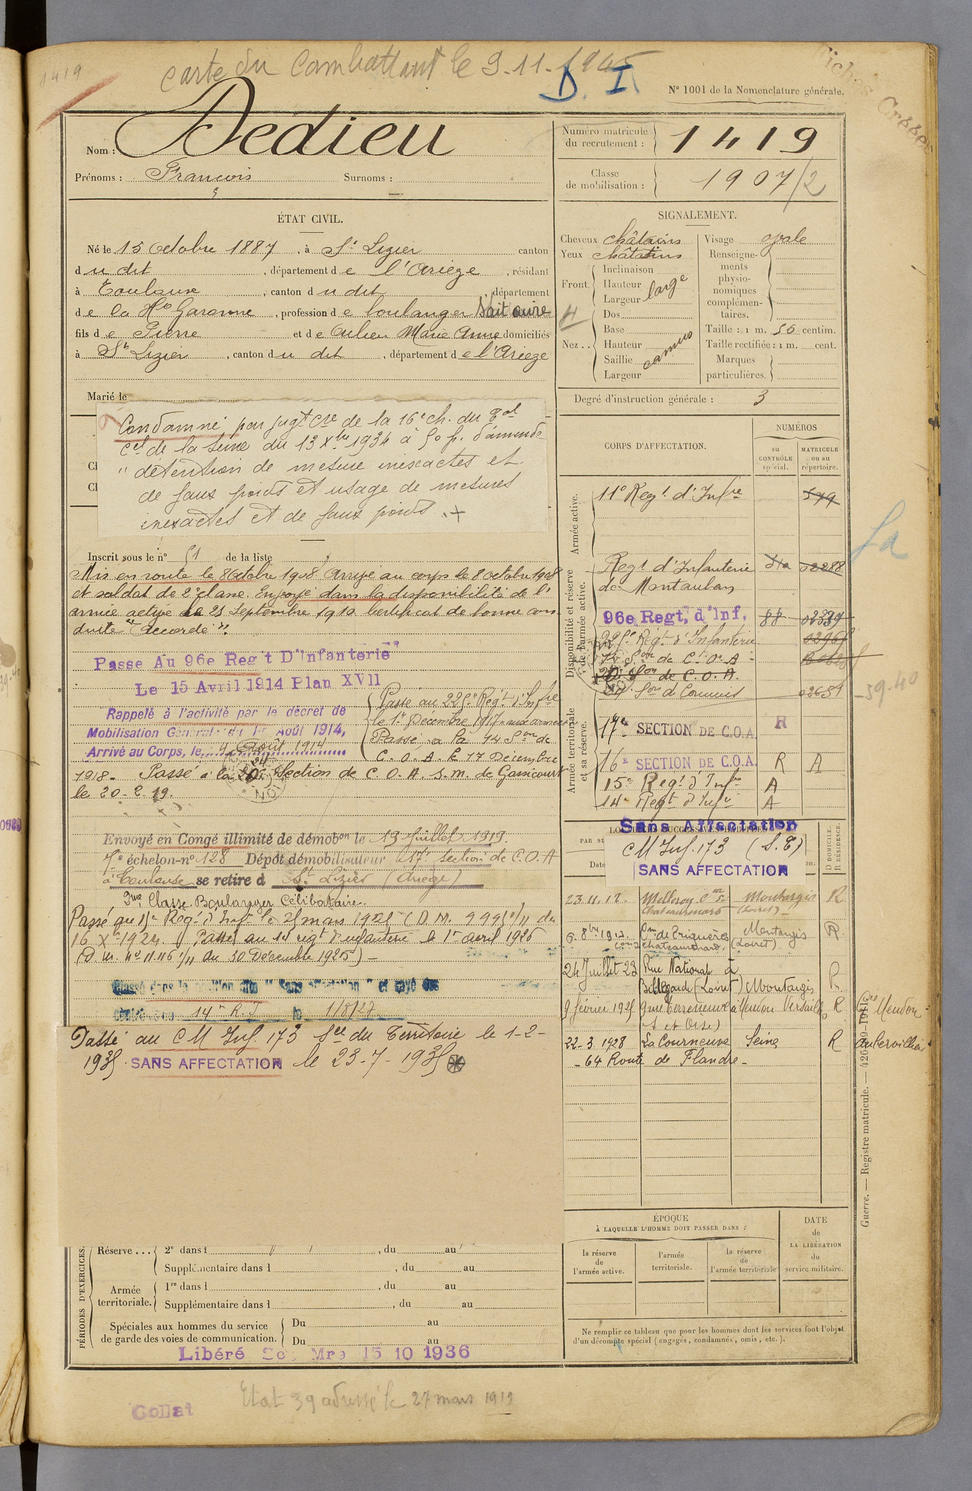 1419
carte du Combattant le 9.11.1945
D. I.
N° 1001 de la Nomenclature générale.
Nom : Dedieu
Prénoms : François
Surnoms :
Numéro matricule du recrutement : 1419
Classe de mobilisation : 1907/2
ÉTAT CIVIL.
Né le 15 Octobre 1887, à St Lizier canton
du dit, département de l'Ariège, résidant
à Toulouse, canton du dit, département
de la Hte Garonne, profession de boulanger
fils de Pierre et de Marie Anne domiciliés
à St Lizier, canton du dit, département de l'Ariège
Marié le
Condamné par jugt Cre de la 16e ch. du
Cel de la Seine du 13 Xbre 1934 à 50 f. d'amende
" détention de mesure inexactes et
de faux poids et usage de mesures
inexactes et de faux poids . +
Inscrit sous le n° 51 de la liste
Mis en route le 8 Octobre 1908 Arrivé au corps le 8 octobre 1908
et soldat de 2e classe. Envoyé dans la disponibilité de l'
armée active le 25 Septembre 1910. Certificat de bonne con
duite "Accordé".
Passe Au 96e Reg't D'Infanterie
Le 15 Avril 1914 Plan XVII
Rappelé à l'activité par le décret de
Mobilisation Générale du 1er Août 1914,
Arrivé au Corps, le 4 Août 1914
Passé au 225e Régt d'Infre
le 1er Décembre 1917 aux armées
Passé à la 14 Son de
C. O. A. le 17 Décembre
1918. Passé à la Section de C. O. A. S. M. de Gassicourt
le 20-2.19.
Envoyé en Congé illimité de démobon le 19 Juillet 1919.
échelon-n° 128 Dépôt démobilisateur 17e Section de C.O.A
à Toulouse se retire à St Lizier (Ariège)
Classe. Boulanger Célibataire.
Passé au Régt d'Inft le 21 mars 1925 (D. M. 999 1/11 du
16 Xe 1924. Passé au 14 régt d'infanterie le 1er avril 1926
(D. M. n° 11.115 1/11 du 30 Décembre 1925) —
Classé dans la position dite "Sans affectation" et rayé des
14e R. I. le 1/8/27
Passé au CM Inf 173 Sce du Territoire le 1-2-
1935. SANS AFFECTATION le 23-7-1935
PÉRIODES D'EXERCICES.
Réserve . . . 2e dans l , du au
Supplémentaire dans l , du au
Armée territoriale. 1re dans l , du au
Supplémentaire dans l , du au
Spéciales aux hommes du service de garde des voies de communication. Du au
Du au
Libéré Se Mre 15 10 1936
Etat 39 adressé le 27 mars 1919
SIGNALEMENT.
Cheveux châtains
Yeux châtains
Front. Inclinaison
Hauteur
Largeur large
Nez . . Dos
Base
Hauteur
Saillie camus
Largeur
Visage ovale
Renseignements physionomiques complémentaires.
Taille : 1 m. 56 centim.
Taille rectifiée : 1 m. cent.
Marques particulières.
Degré d'instruction générale : 3
CORPS D'AFFECTATION.
NUMÉROS
au CONTRÔLE spécial.
MATRICULE ou au répertoire.
Armée active.
11e Régt d'Infre 579
Disponibilité et réserve de l'armée active.
Régt d'Infanterie
de Montauban
96e Regt, d'Inf. 88
225e Régt d'Infanterie
Son de C. O. A.
Son de C. O. A.
59-40
Armée territoriale et sa réserve.
17e SECTION DE C.O.A. R
16e SECTION DE C.O.A. R A
15e Régt d'Infre A
14e Régt d'Infre A
Sans Affectation
CM Inf. 173 (S.T)
SANS AFFECTATION
Date
D DOMICILE. R RÉSIDENCE.
23.11.12. Montargis R
(Loiret)
Montargis R
Chateaurenard, (Loiret)
24 Juillet 23 Rue Nationale à
Bellegarde (Loiret) Montargis R
9 février 1925 à Meudon Versailles R Meudon
(S et Oise)
22-3-1928 La Courneuve Seine R Aubervilliers
- 64 Route de Flandre -
ÉPOQUE
À LAQUELLE L'HOMME DOIT PASSER DANS :
la réserve de l'armée active.
l'armée territoriale.
la réserve de l'armée territoriale
DATE de LA LIBÉRATION du service militaire.
Ne remplir ce tableau que pour les hommes dont les services font l'objet
d'un décompte spécial (engagés, condamnés, omis, etc.).
Guerre. — Registre matricule.